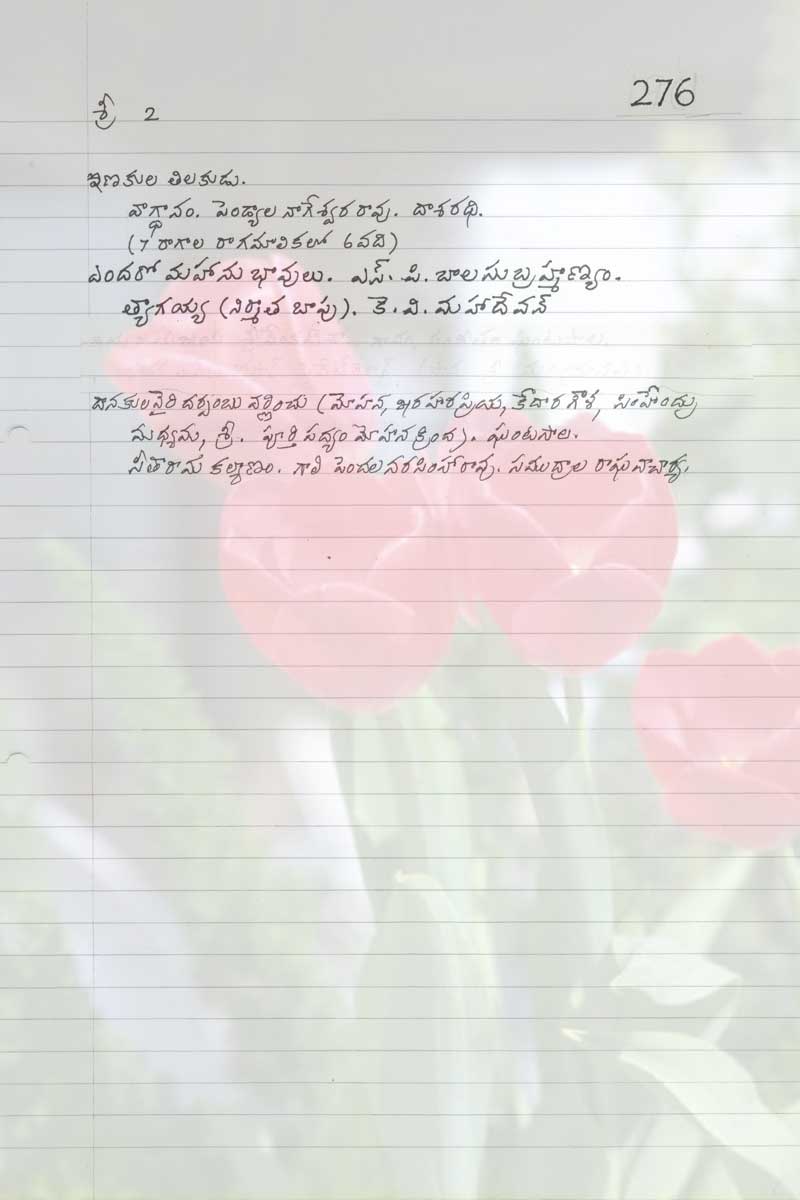 276
శ్రీ 2
ఇణకుల తిలకుడు.
వాగ్దానం. పెండ్యాల నాగేశ్వర రావు. దాశరథి.
(7 రాగాల రాగమాలికలో 6వది)
ఎందరో మహాను భావులు. ఎస్. పి. బాల సుబ్రహ్మణ్యం.
త్యాగయ్య (నిర్మాత బాపు). కె. వి. మహాదేవన్
దానకులవైరి దర్పంబు వర్ణించు (మోహన, ఖరహరప్రియ, కేదార గౌళ, సింహేంద్ర
మధ్యమ, శ్రీ. పూర్తి పద్యం మోహన క్రింద). ఘంటసాల.
సీతారామ కల్యాణం. గాలి పెంచల నరసింహారావు. సముద్రాల రాఘవాచార్య.